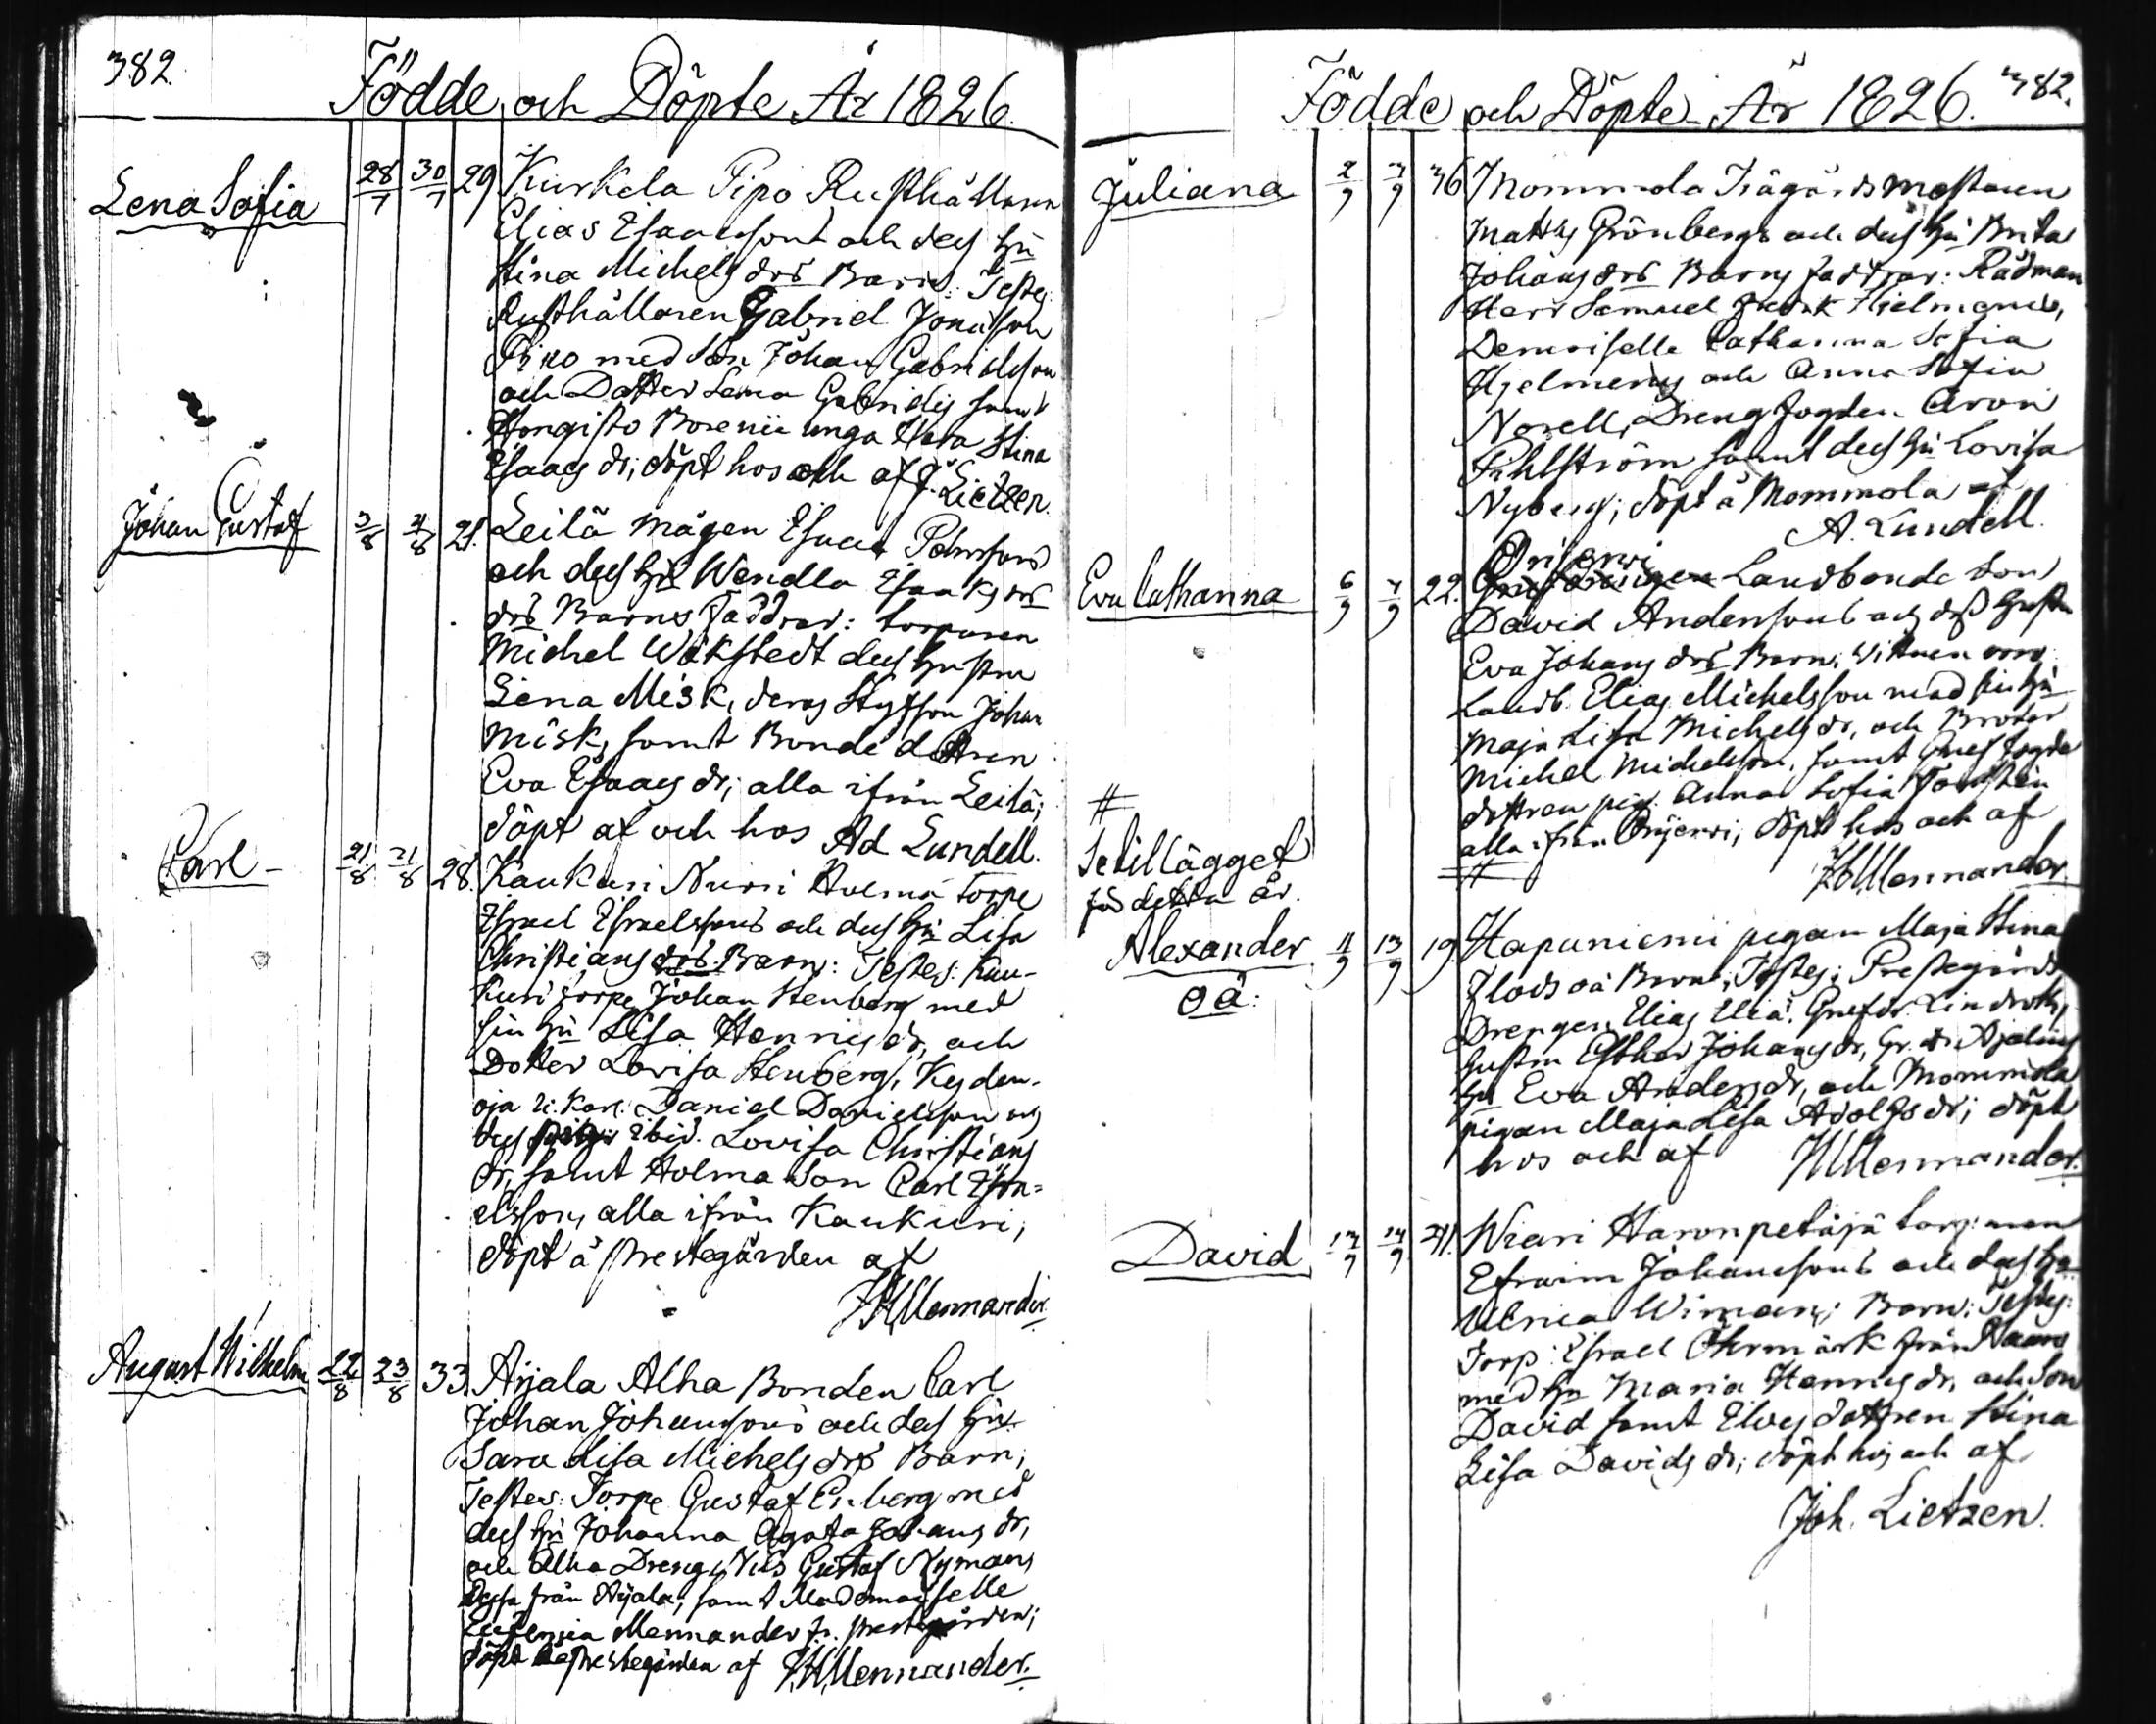 382.
Födde och Döpte År 1826.
Lena Sofia 28/7 30/7 29 Kurkela Pipo Rusthållaren
Elias Esaacssons och dess hu
Stina Michels drs Barn: Testes:
Rusthållaren Gabriel Jonasson
Pipo med Son Johan Gabrielsson
och Dotter Lena Gabriels samt
Hongisto unga Stina
Esaacs dr; döpt hos och af J. Lietzen.
Johan Gustaf 3/8 4/8 21. Leilä Mågen Esaac
och dess hu Wendla Esaaks drs
drs Barns Faddrar: torparen
Michel Wikstedt dess hustru
Lena Misk, deras Styfson Johan
Misk, samt Bonde dottren
Eva Esaacs dr; alla ifrån Leilä;
döpt af och hos Ad Lundell.
Carl - 21/8 21/8 28. Kaukuri Nurri Holma torpe
Esrael Esraelssons och dess hu Lisa
Christians drs Barn: Testes: Kau-
kuri torpe Johan Stenberg med
sin hu Lisa Henrics dr, och
Dotter Lovisa Stenberg, Keyden-
oja Daniel Danielsson och
dess ibid. Lovisa Christians
dr, samt Holma Son Carl Esra=
elsson, alla ifrån Kaukuri;
döpt å Prestegården af
JHMennander.
August Wilhelm 22/8 23/8 33. Arjala Alha Bonden Carl
Johan Johanssons och dess hu
Sara Lisa Michels drs Barn;
Testes: Torpe Gustaf Enberg med
dess hu Johanna Agata Johans dr,
och Alha Dreng Nils Gustaf Nyman,
från Arjala, samt Mademoiselle
Mennander fr. Prestegården;
döpt å Prestegården af JHMennander.
Födde och Döpte År 1826. 382.
Juliana 2/9 3/9 36 Mommola Trägårdsmästaren
Matts Grönbergs och dess hu Brita
Johans drs Barns faddrar: Rådman
Herr Samuel Hjelmerus,
Demoiselle Catharina Sofia
Hjelmerus och Anna Sofia
Norell, Drengfogden Aron
samt dess hu Lovisa
Nyberg; döpt å Mommola af
A. Lundell.
Eva Catharina 6/9 7/9 22. Orijerwi Landbonde Son
David Anderssons och dess hustru
Eva Johans drs Barn. Wittnen voro
Landb. Elias Michelsson med sin hu
Maja Lisa Michels dr, och Broder
Michel Michelsson, samt fogde
dottren pig. Anna Sofia
alla ifrån Orijerwi; döpt hos och af
JHMennander
#
Se tillägget
för detta år.
Alexander 11/9 13/9 19 Hapuniemi pigan Maja Stina
oä: Flods oä Barn; Testes: Prestegårds
Drengen Elias Elia. Lindroths
hustru Esther Johans dr,
hu Eva Anders dr, och Mommola
pigan Maja Lisa Adolfs dr; döpt
hos och af JHMennander.
David 13/9 14/9 41. Wiari Haronpetäjä torp: man
Efraim Johanssons och dess hu
Ulrica Wimans Barn: Testes:
Torp: Esrael från
med hu Maria Henrics dr, och Son
David samt dottren Stina
Lisa Davids dr; döpt hos och af
Joh. Lietzen.